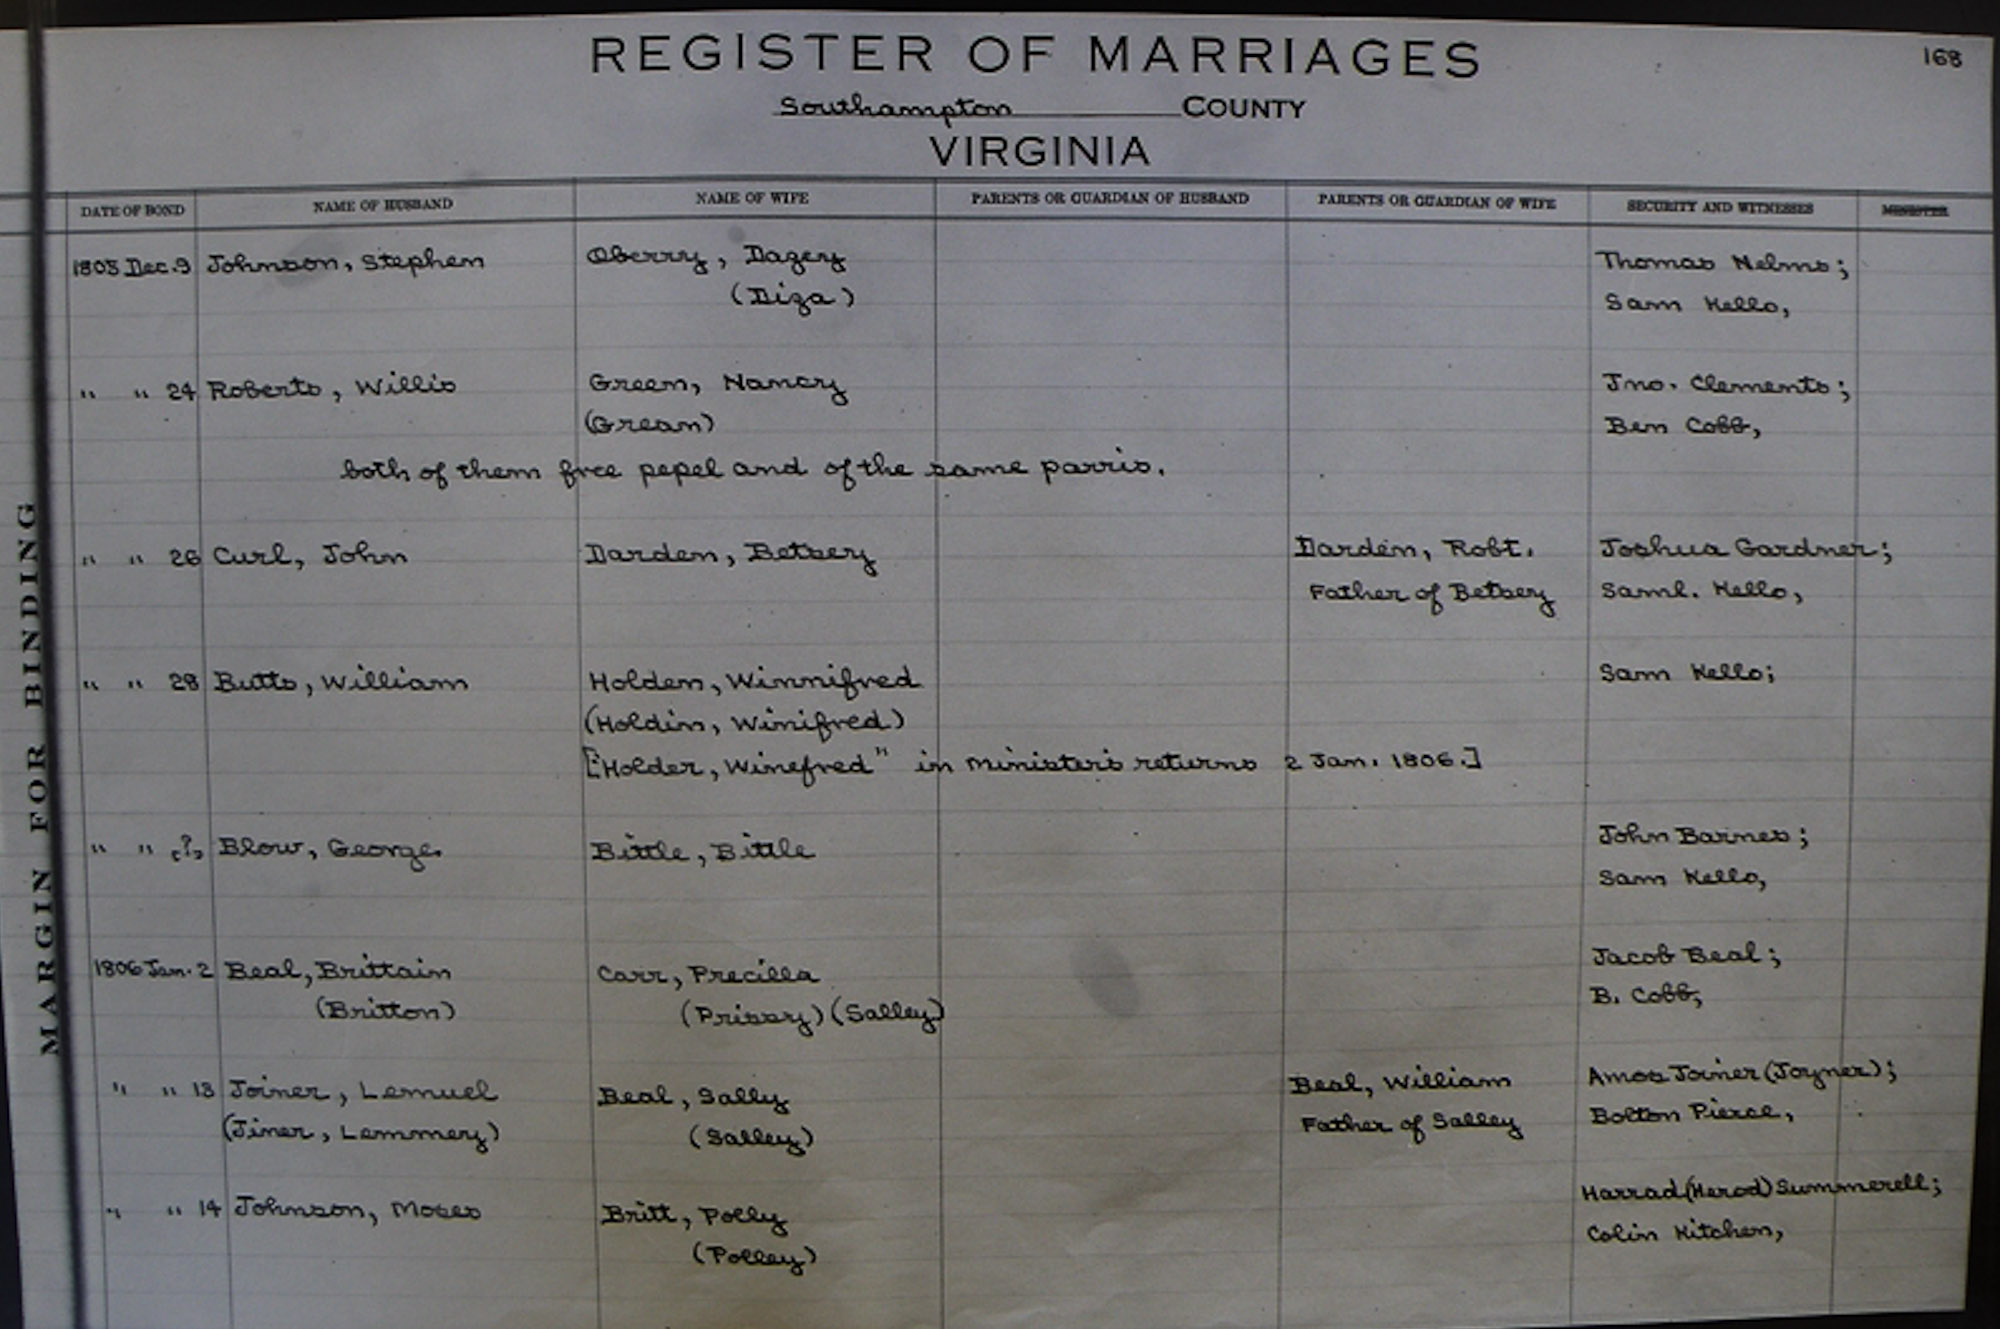 REGISTER OF MARRIAGES
168
Southampton COUNTY
VIRGINIA
DATE OF BOND NAME OF HUSBAND NAME OF WIFE PARENTS OR GUARDIAN OF HUSBAND PARENTS OR GUARDIAN OF WIFE SECURITY AND WITNESSES MINISTER
1805 Dec. 9 Johnson, Stephen Oberry, Dazey Thomas Nelms;
(Diza) Sam Kello,
" " 24 Roberts, Willis Green, Nancy Jno. Clements;
(Grean) Ben Cobb,
both of them free pepel and of the same parris.
" " 26 Curl, John Darden, Betsey Darden, Robt. Joshua Gardner;
Father of Betsey Saml. Kello,
" " 28 Butts, William Holden, Winnifred Sam Kello;
(Holdin, Winifred)
["Holder, Winefred" in minister's returns 2 Jan. 1806.]
" " ? Blow, George Bittle, Bittle John Barnes;
Sam Kello,
1806 Jan. 2 Beal, Brittain Carr, Precilla Jacob Beal;
(Britton) (Prissy) (Salley) B. Cobb,
" " 13 Joiner, Lemuel Beal, Sally Beal, William Amos Joiner (Joyner);
(Jiner, Lemmery) (Salley) Father of Salley Bolton Pierce,
" " 14 Johnson, Moses Britt, Polly Harrad (Herod) Summerell;
(Polley) Colin Kitchen,
MARGIN FOR BINDING